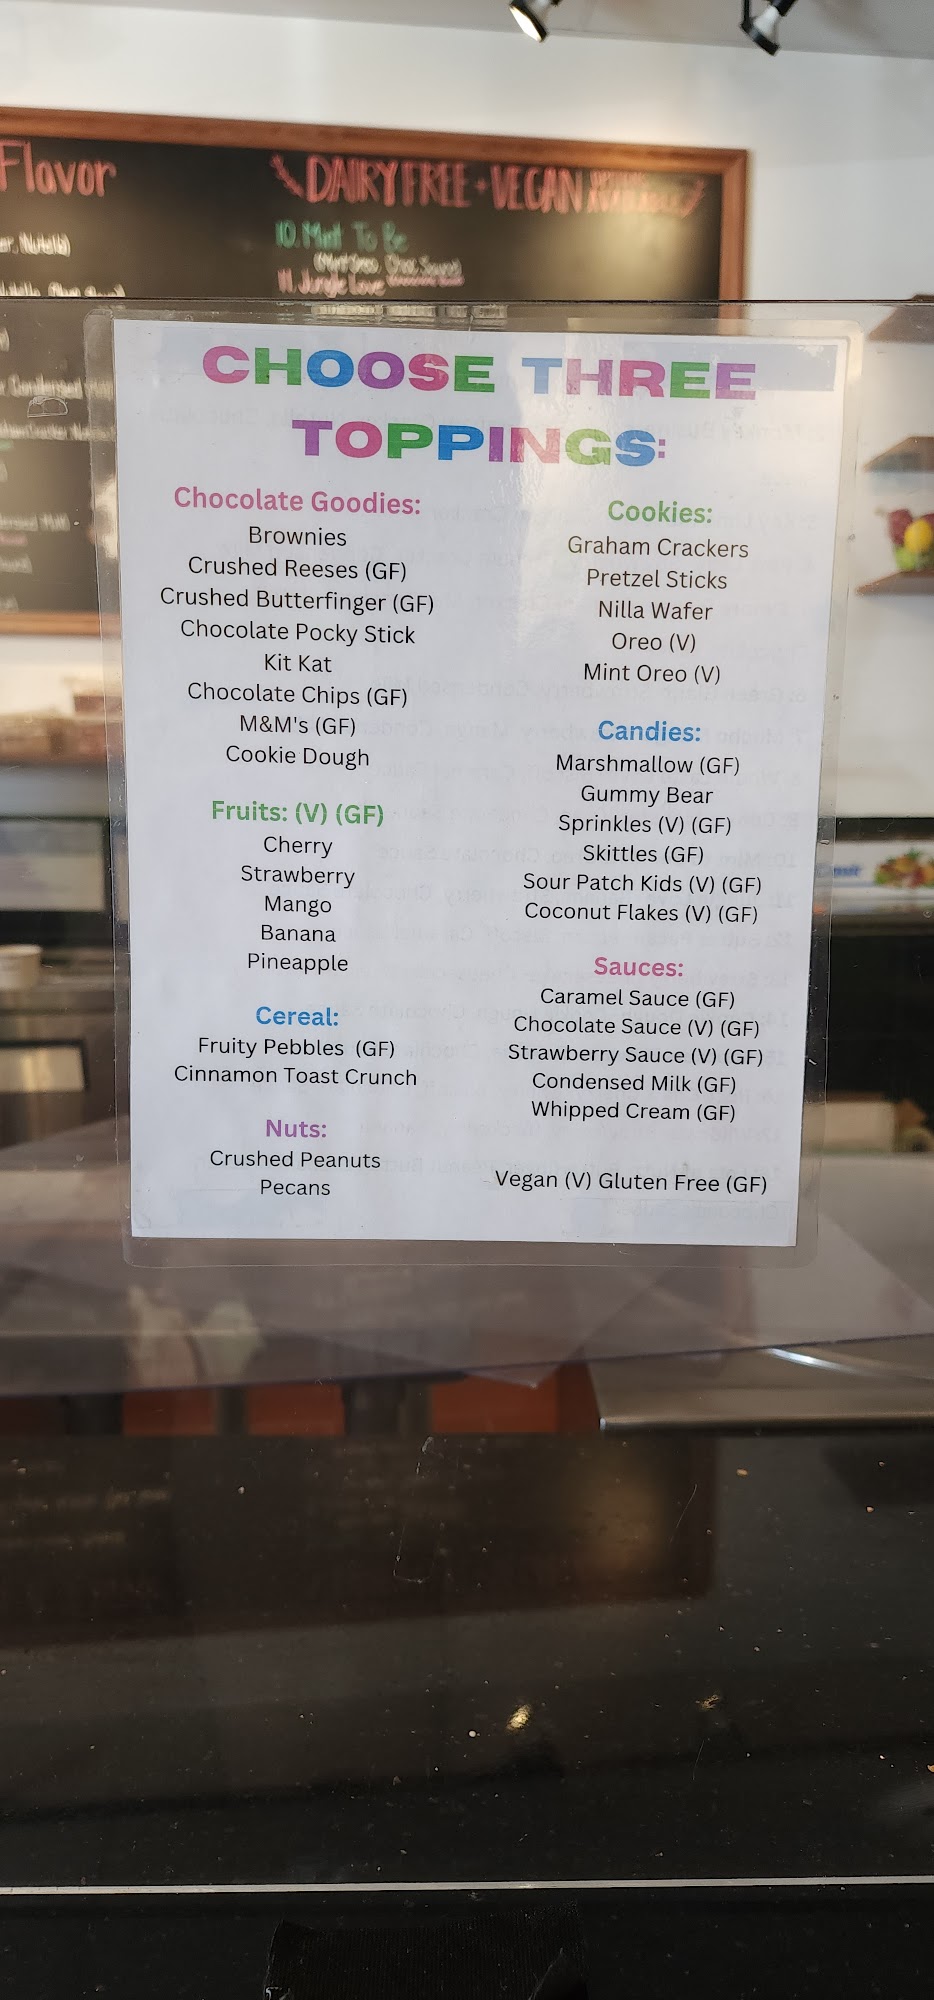 Flavor
DAIRY FREE + VEGAN
10. Mint To Be
11. Jungle Love
CHOOSE THREE
TOPPINGS:
Chocolate Goodies:
Brownies
Crushed Reeses (GF)
Crushed Butterfinger (GF)
Chocolate Pocky Stick
Kit Kat
Chocolate Chips (GF)
M&M's (GF)
Cookie Dough
Fruits: (V) (GF)
Cherry
Strawberry
Mango
Banana
Pineapple
Cereal:
Fruity Pebbles (GF)
Cinnamon Toast Crunch
Nuts:
Crushed Peanuts
Pecans
Cookies:
Graham Crackers
Pretzel Sticks
Nilla Wafer
Oreo (V)
Mint Oreo (V)
Candies:
Marshmallow (GF)
Gummy Bear
Sprinkles (V) (GF)
Skittles (GF)
Sour Patch Kids (V) (GF)
Coconut Flakes (V) (GF)
Sauces:
Caramel Sauce (GF)
Chocolate Sauce (V) (GF)
Strawberry Sauce (V) (GF)
Condensed Milk (GF)
Whipped Cream (GF)
Vegan (V) Gluten Free (GF)